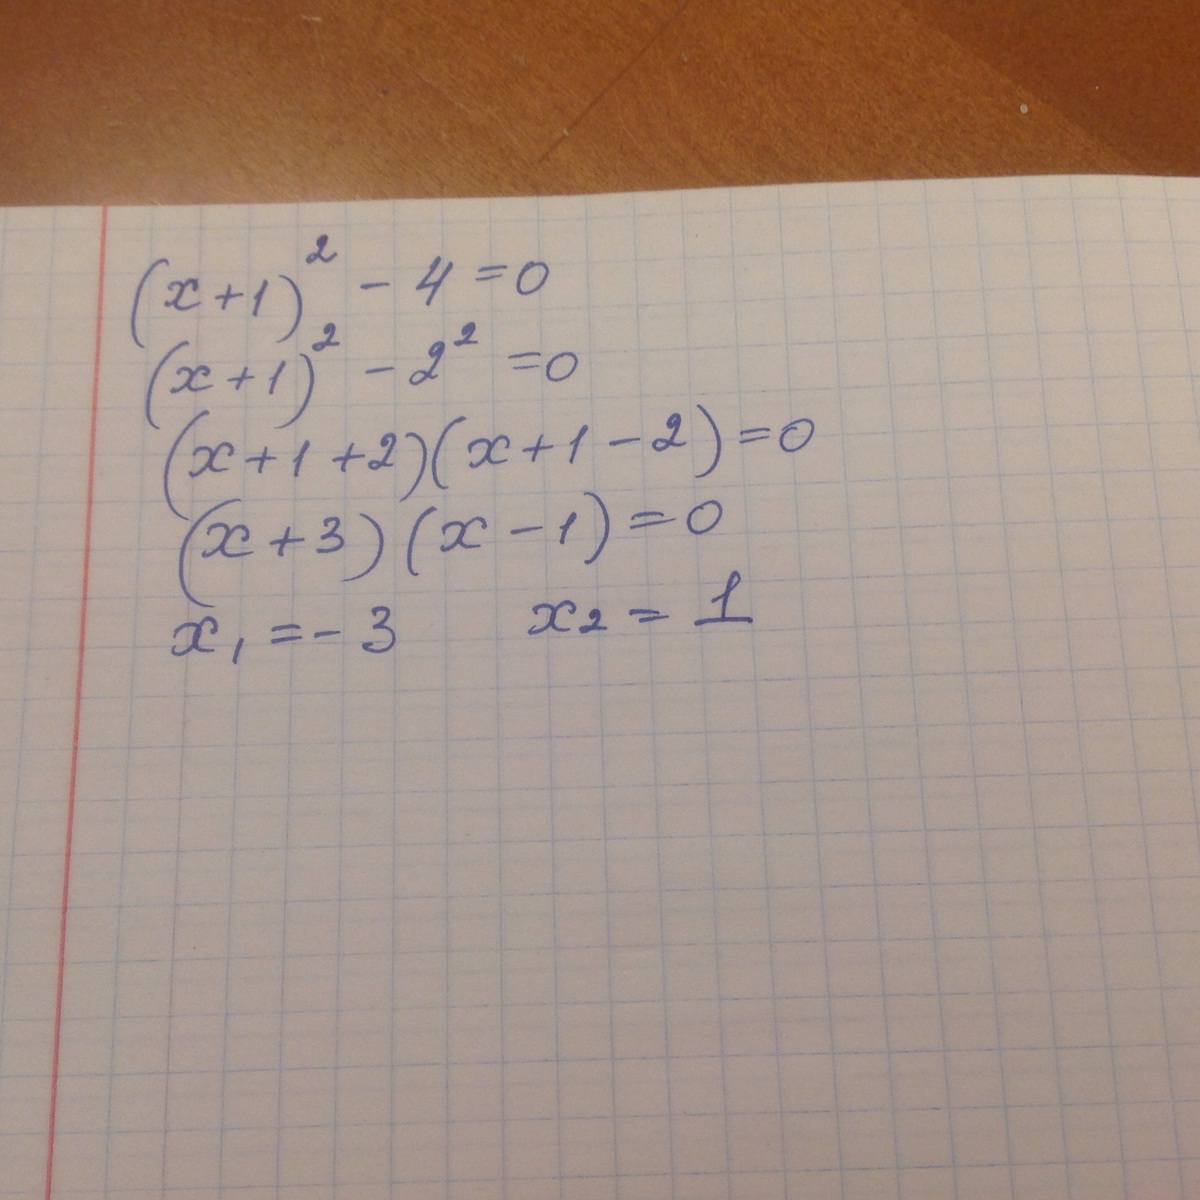 (x+1)² - 4 = 0
(x+1)² - 2² = 0
(x+1+2)(x+1-2) = 0
(x+3)(x-1) = 0
x₁ = -3 x₂ = 1